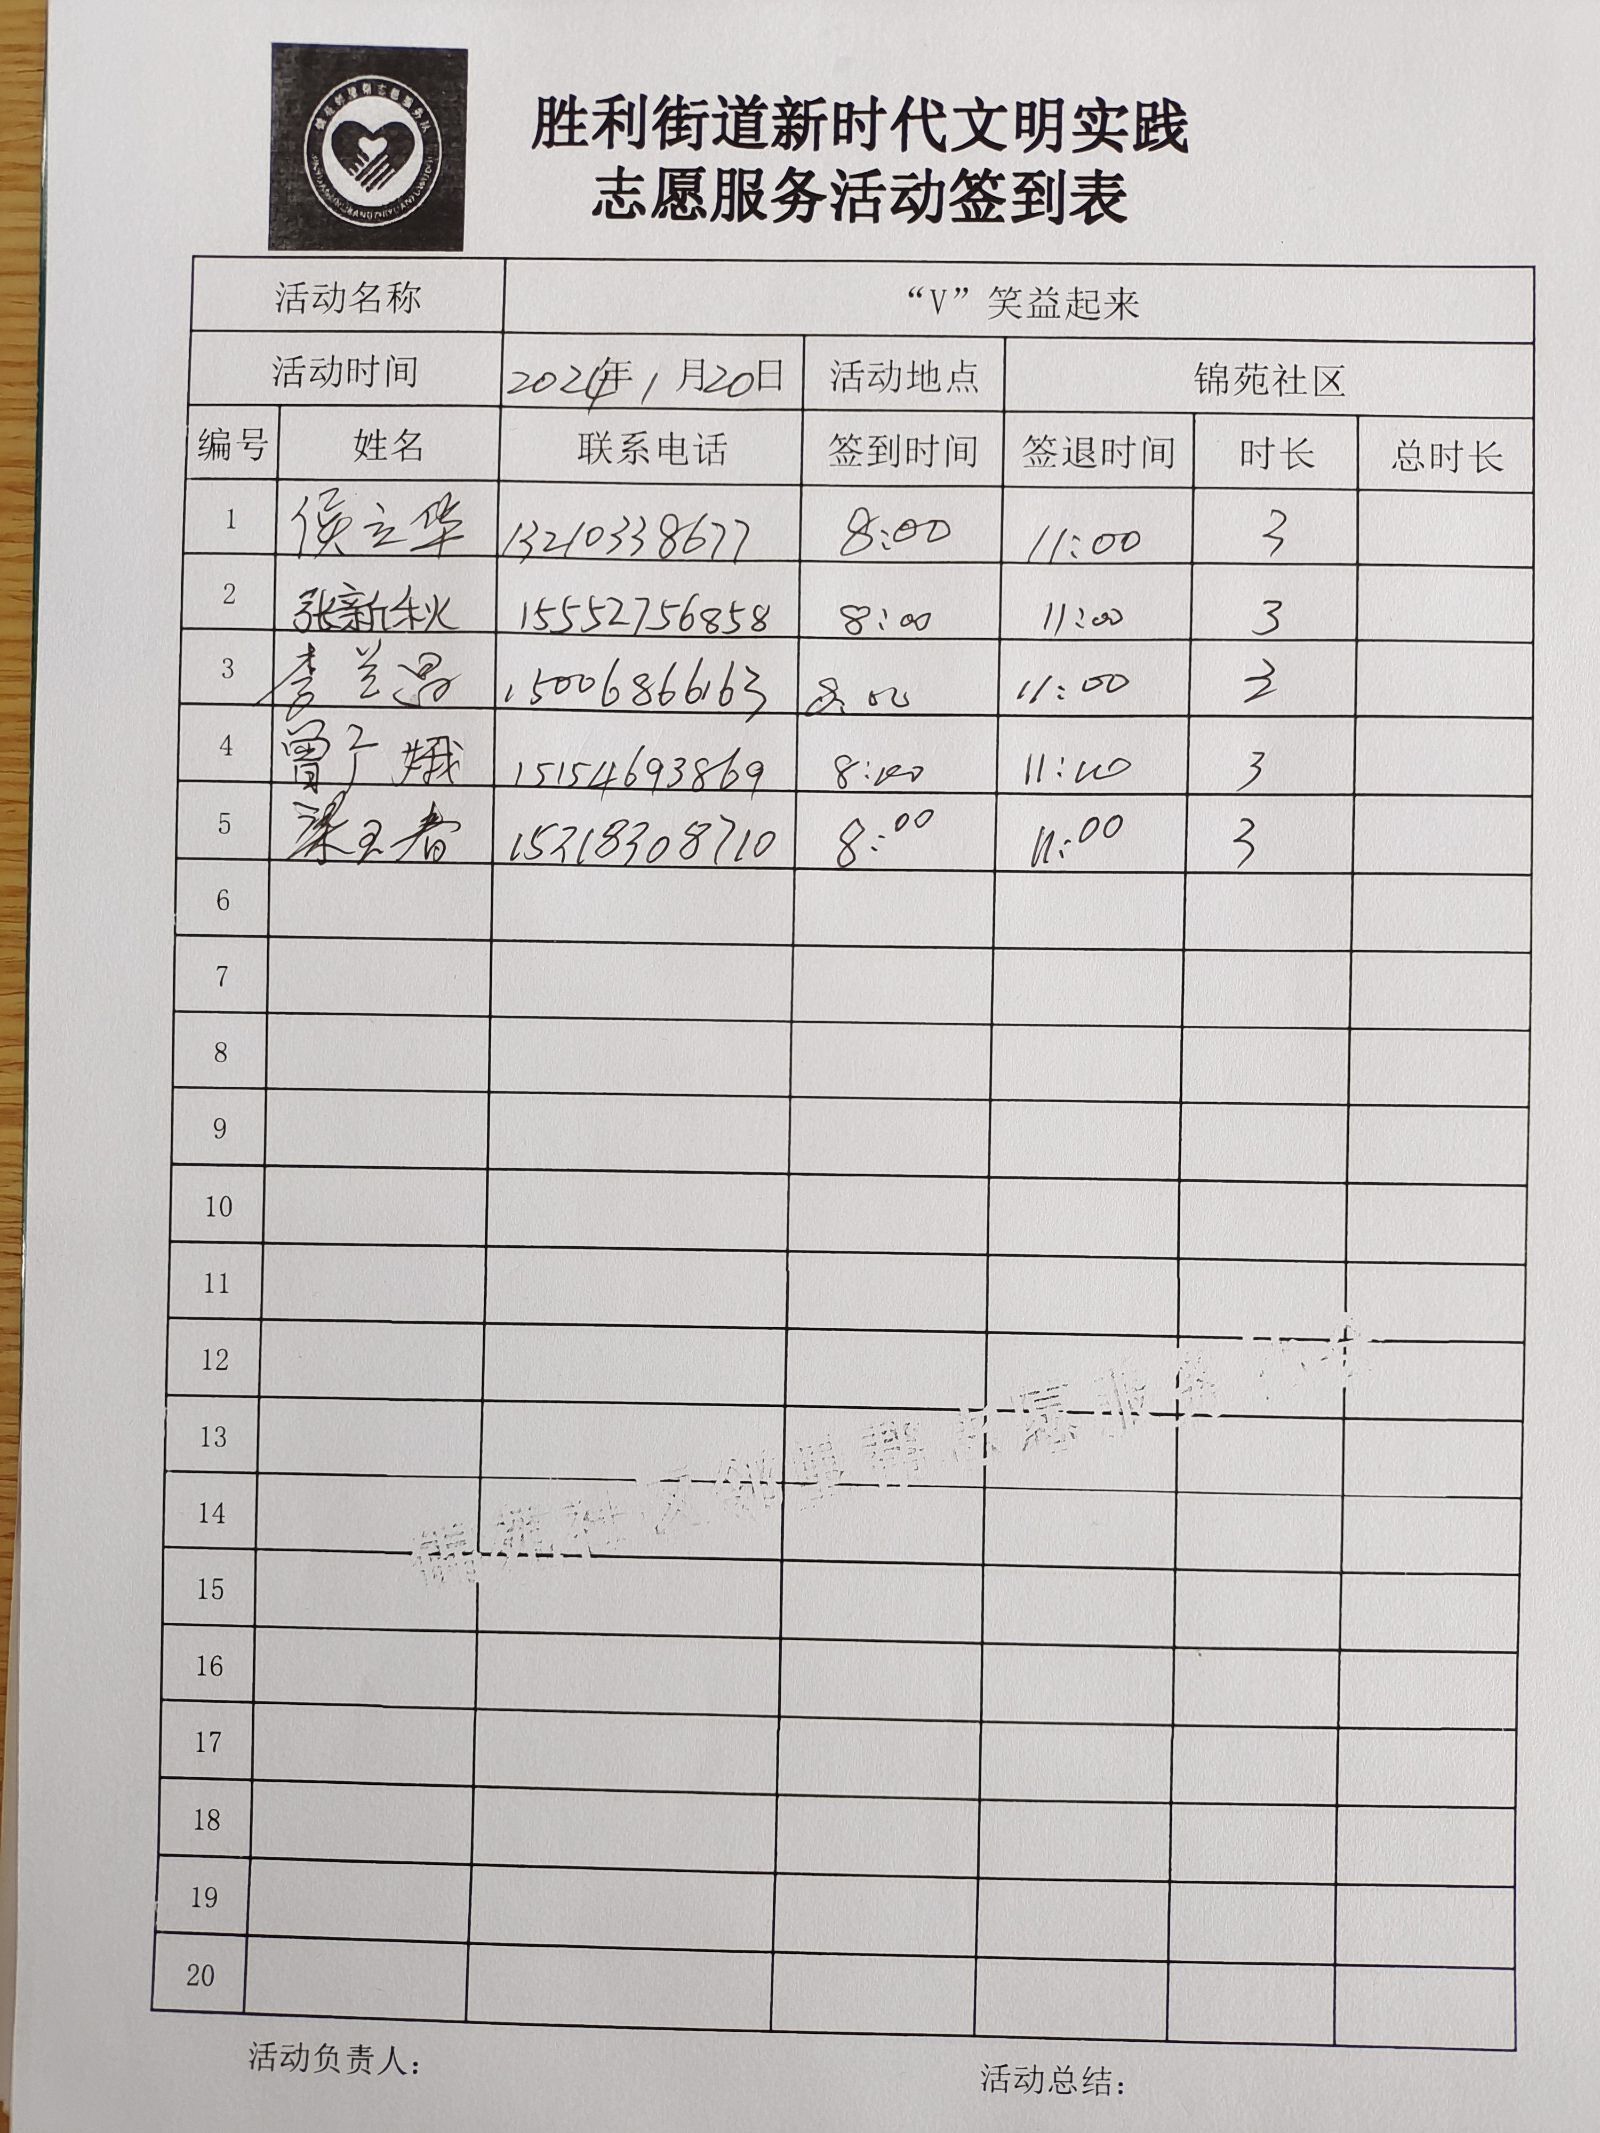 胜利街道新时代文明实践
志愿服务活动签到表
活动名称 “V”笑益起来
活动时间 2024年1月20日 活动地点 锦苑社区
编号 姓名 联系电话 签到时间 签退时间 时长 总时长
1 侯立华 13210338677 8:00 11:00 3
2 张新秋 15552756858 8:00 11:00 3
3 李兰昌 15006866163 8:00 11:00 3
4 曾广娥 15154693869 8:00 11:00 3
5 梁玉春 15218308710 8:00 11:00 3
6
7
8
9
10
11
12
13
14
15
16
17
18
19
20
活动负责人： 活动总结：